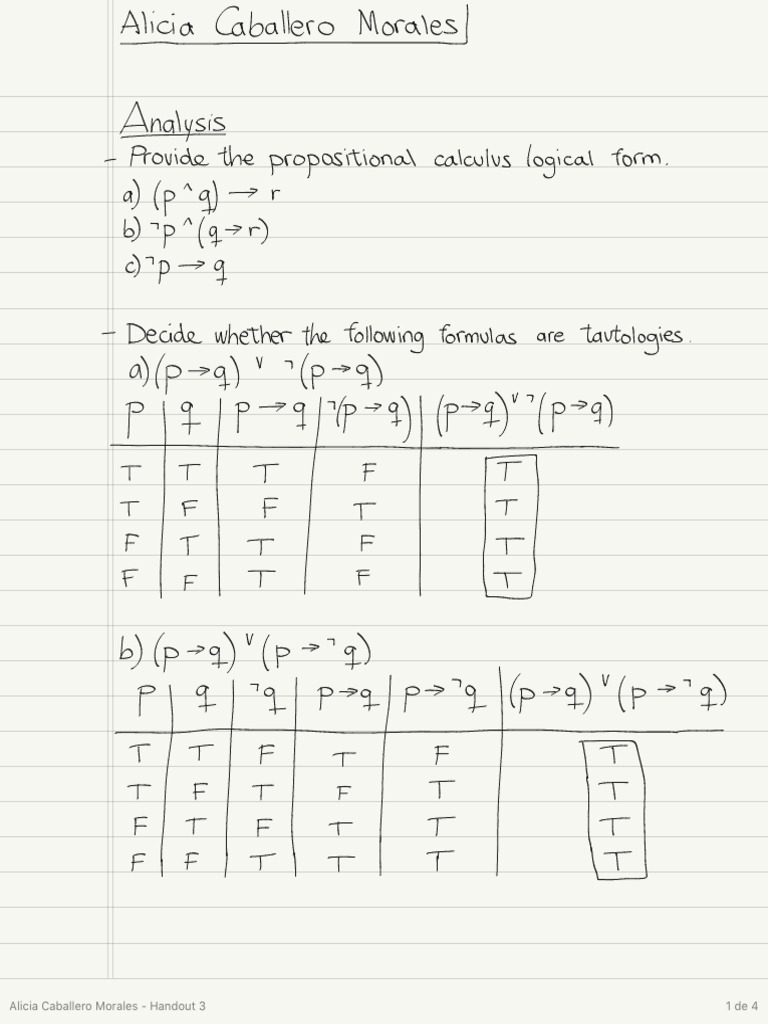 Alicia Caballero Morales
Analysis
- Provide the propositional calculus logical form.
a) (p ^ q) → r
b) ¬p ^ (q → r)
c) ¬p → q
- Decide whether the following formulas are tautologies.
a) (p → q) ∨ ¬(p → q)
p | q | p → q | ¬(p → q) | (p → q) ∨ ¬(p → q)
T T T F T
T F F T T
F T T F T
F F T F T
b) (p → q) ∨ (p → ¬q)
p | q | ¬q | p → q | p → ¬q | (p → q) ∨ (p → ¬q)
T T F T F T
T F T F T T
F T F T T T
F F T T T T
Alicia Caballero Morales - Handout 3 1 de 4